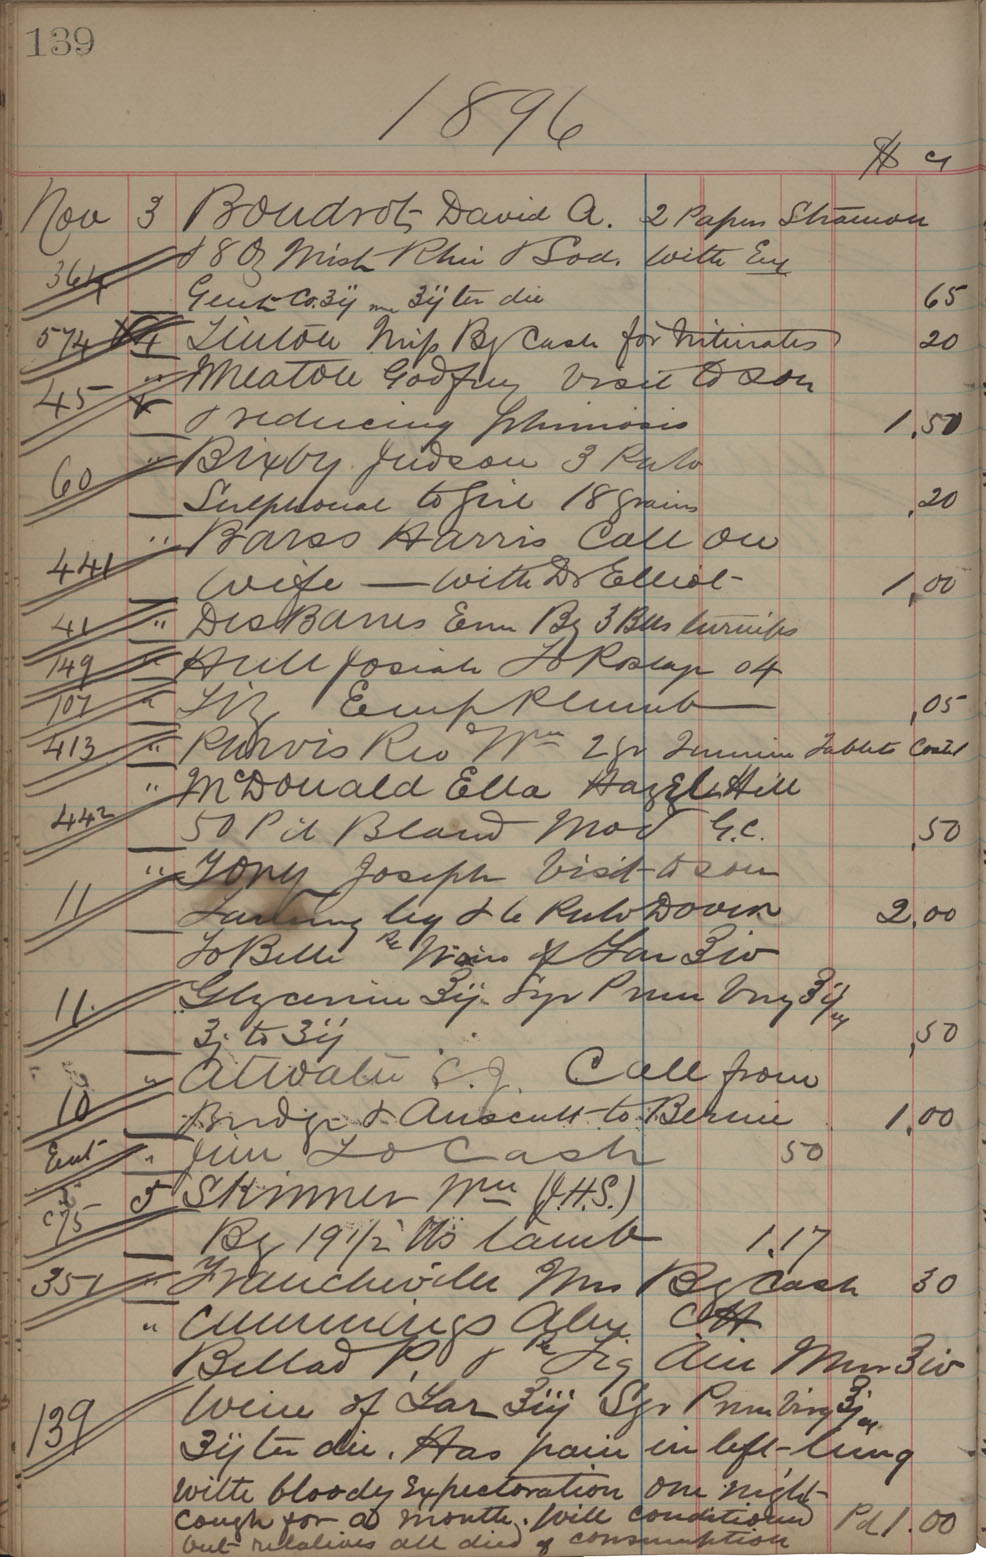 139
1896
$ ct
Nov 3 Boudrot David A. 2 Papers Stramon
& 8 Oz Mist Rhei & Sod. with
364
Gent Co. ʒij ʒij ter die 65
574 4 Linton Mrs By Cash for 20
" Meatou Godfrey Visit to son
45
& reducing phimosis 1.50
" Bixby Judson 3 Pulv
60
Sulphonal to Girl 18 grains .20
" Barss Harris Call on
441
wife — with Dr Elliot 1.00
41 " DesBarres Em By 3 Bbls turnips
149 " Hull Josiah To 04
107 " Liz Emp Plumb .05
413 " Purvis Rev Wm 2 gr Tablets
" McDonald Ella Hazel Hill
442
50 Pil Blaud Mod G.C. .50
" Tony Joseph Visit to son
11
leg & 6 Pulv Dover 2.00
To Belle Rx of Tar ʒiv
Glycerine ʒij Syr Prun Virg
11.
ʒj to ʒij .50
" Atwater C.J. Call from
10
Bridge & Auscult to Bernie 1.00
Ent " Jim To Cash 50
5 Skinner Wm (J.H.S.)
c75
By 19 1/2 lbs lamb 1.17
351 " Francheville Mrs By Cash 30
" Cummings Alex. CH
Bellad P. & Rx ʒiv
Wine of Tar ʒiij Syr Prun Virg
139
ʒij ter die. Has pain in left lung
with bloody expectoration one night
cough for a month. Well conditioned Pd 1.00
but relatives all died of consumption